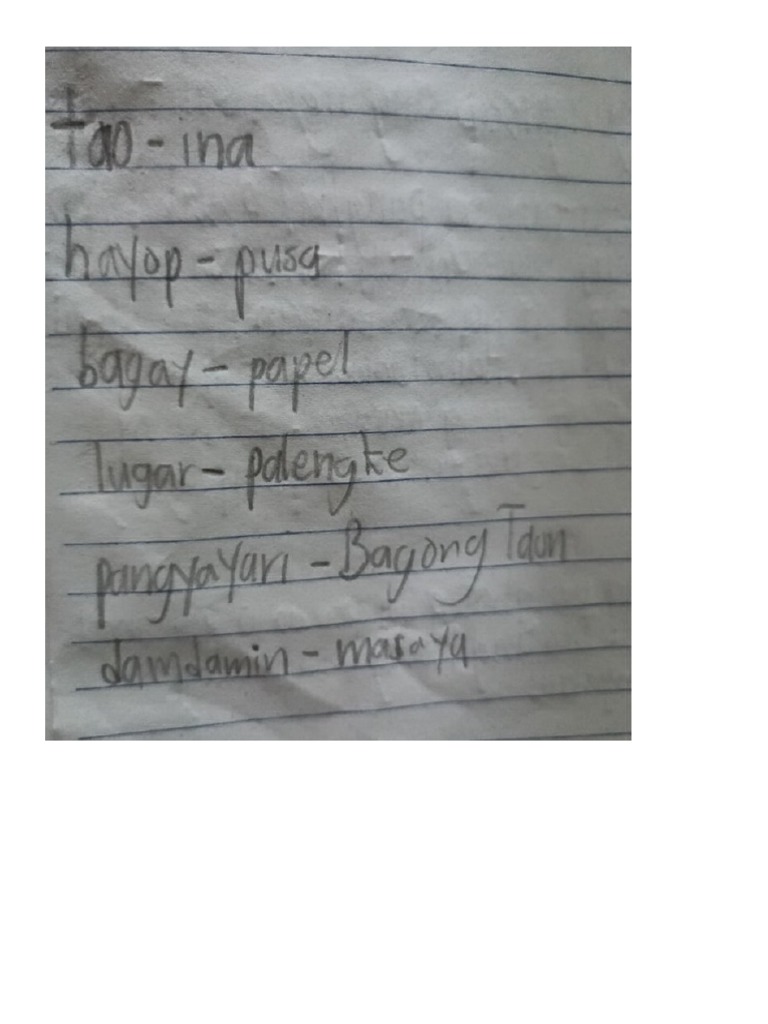 Tao - ina
hayop - pusa
bagay - papel
lugar - palengke
pangyayari - Bagong Taon
damdamin - masaya